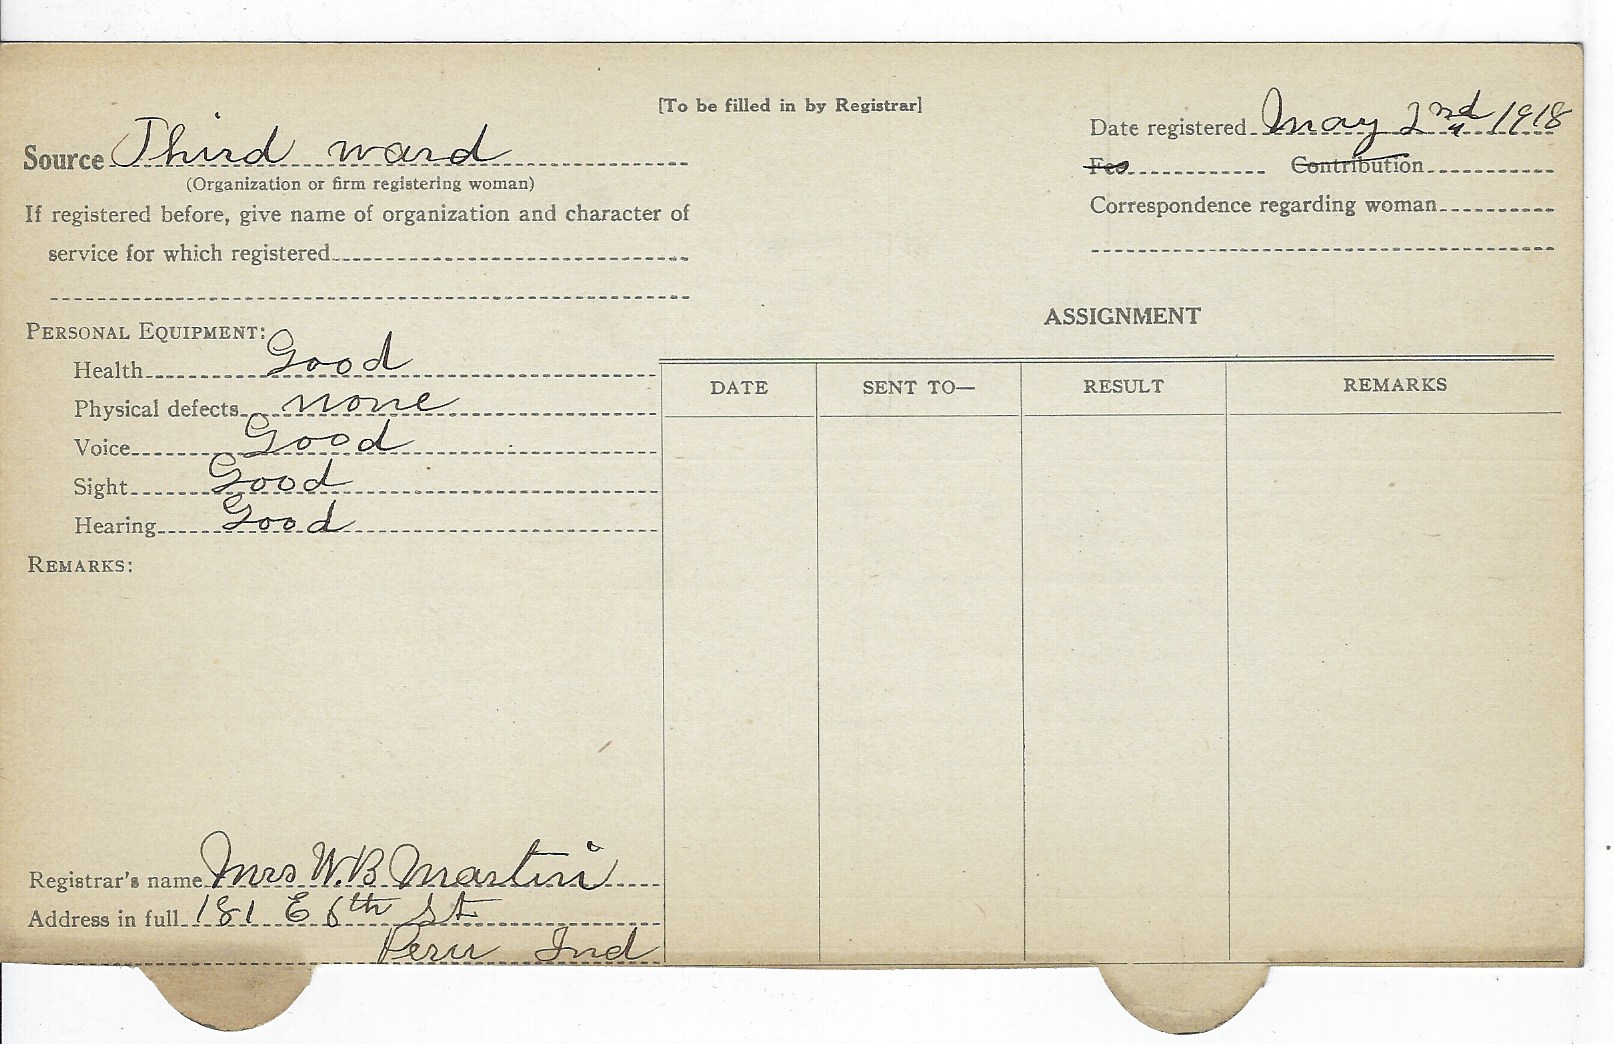 [To be filled in by Registrar]
Source Third ward
(Organization or firm registering woman)
If registered before, give name of organization and character of
service for which registered
Date registered May 2nd 1918
Fee Contribution
Correspondence regarding woman
PERSONAL EQUIPMENT:
Health Good
Physical defects none
Voice Good
Sight Good
Hearing Good
REMARKS:
ASSIGNMENT
DATE SENT TO— RESULT REMARKS
Registrar's name Mrs W.B Martin
Address in full 181 E 6th St
Peru Ind